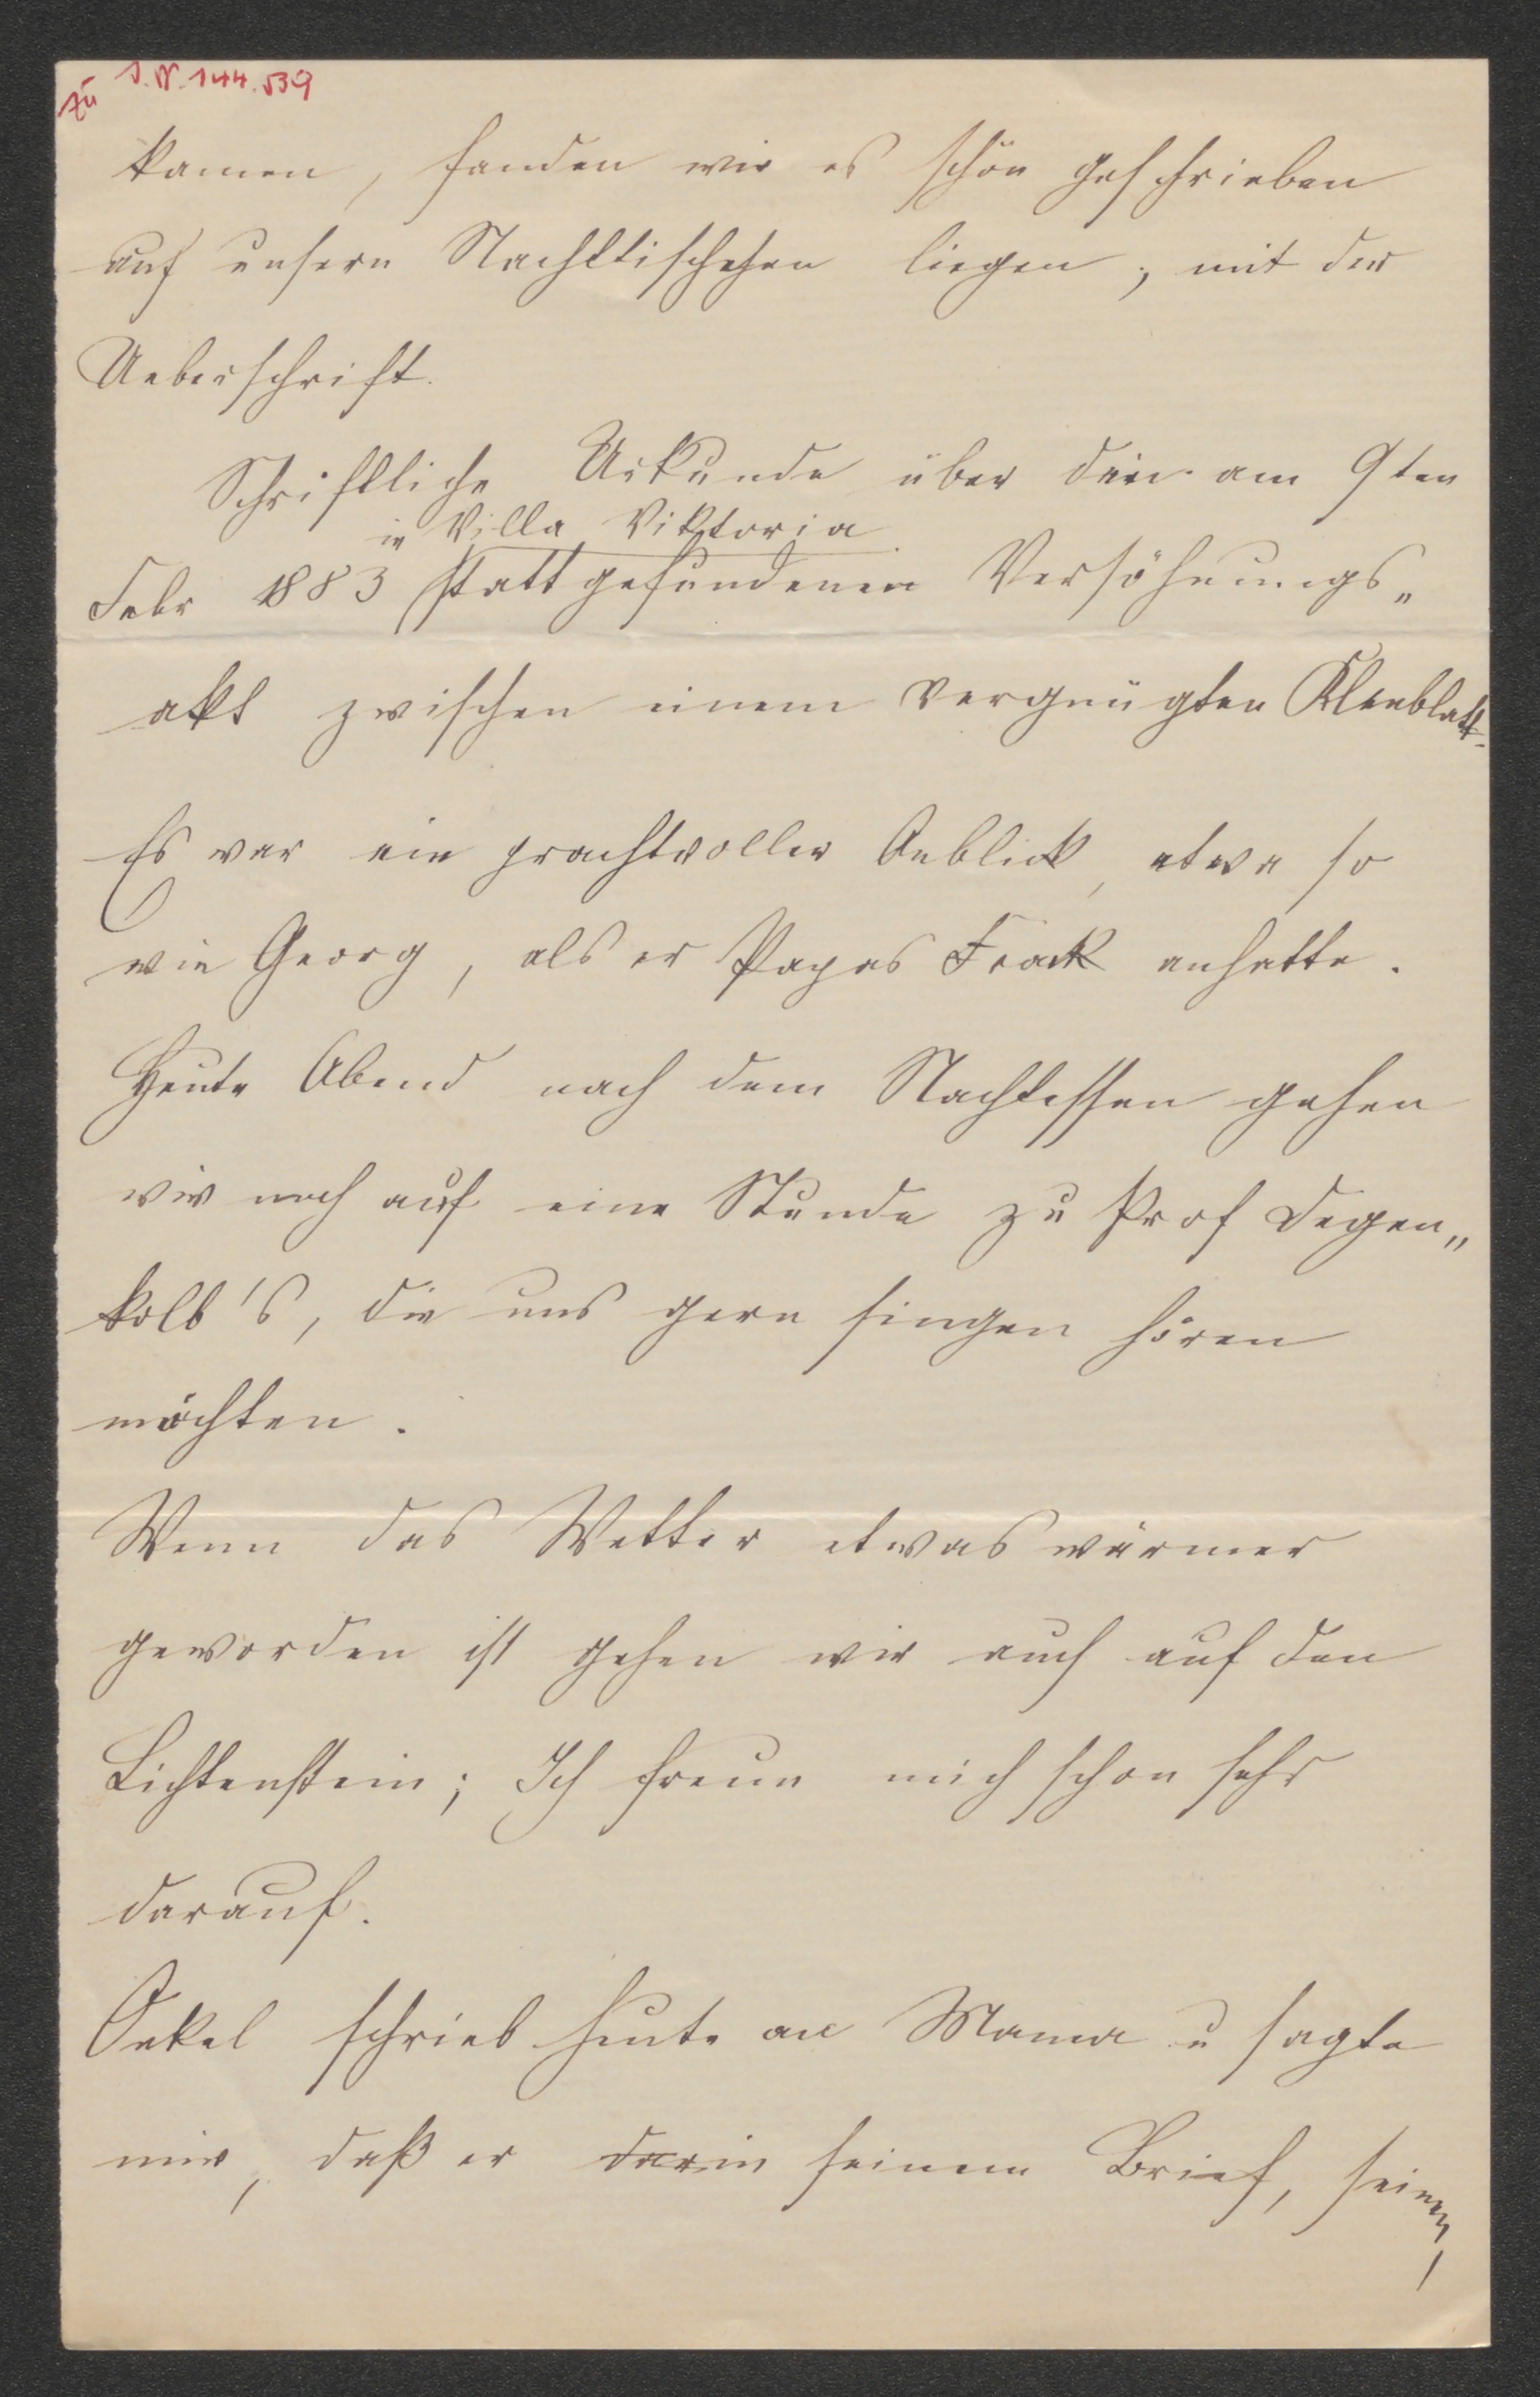 zu I.N. 144.539
kamen, fanden wir es schön geschrieben
auf unsern Nachttischchen liegen, mit der
Ueberschrift.
Schriftliche Urkunde über den am 9ten
in Villa Viktoria
Febr 1883 stattgefundenen Versöhnungs„
akt zwischen einem vergnügten Kleeblatt.
Es war ein prachtvoller Anblick, etwa so
wie Georg, als er Papas Frack anhatte.
Heute Abend nach dem Nachtessen gehen
wir noch auf eine Stunde zu Prof Degen„
kolb's, die uns gern singen hören
möchten.
Wenn das Wetter etwas wärmer
geworden ist gehen wir auch auf den
Lichtenstein; Ich freue mich schon sehr
darauf.
Onkel schrieb heute an Mama u sagte
mir, daß er darin seinem Brief, seinen,